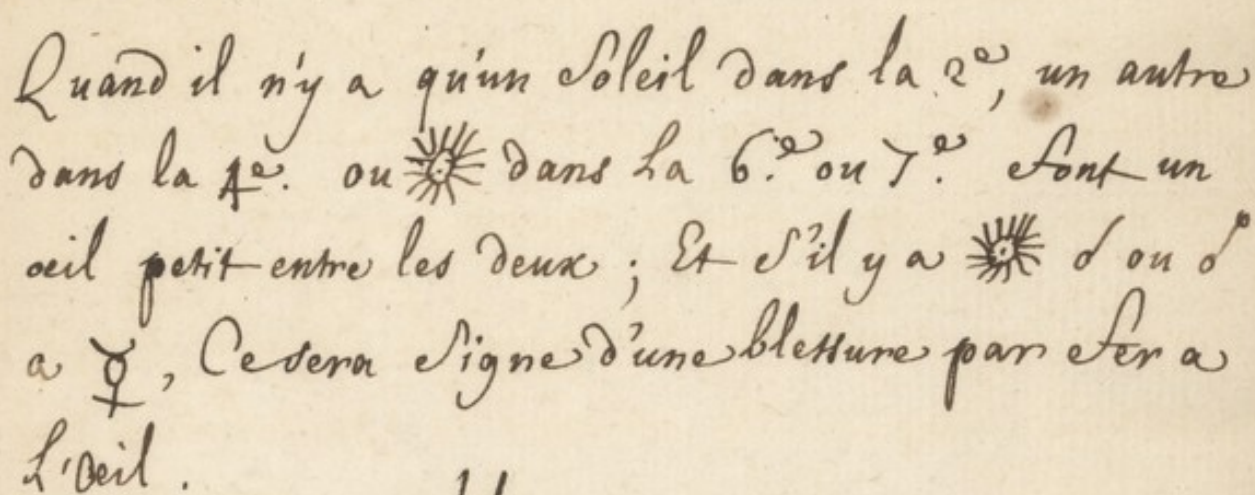 Quand il n'y a qu'un Soleil dans la 2e, un autre
dans la 4e. ou ☀ dans La 6.e ou 7.e font un
œil petit entre les deux ; Et S'il y a ☀ ☌ ou ☍
a ☿, Ce sera Signe d'une blessure par fer a
L'Œil.